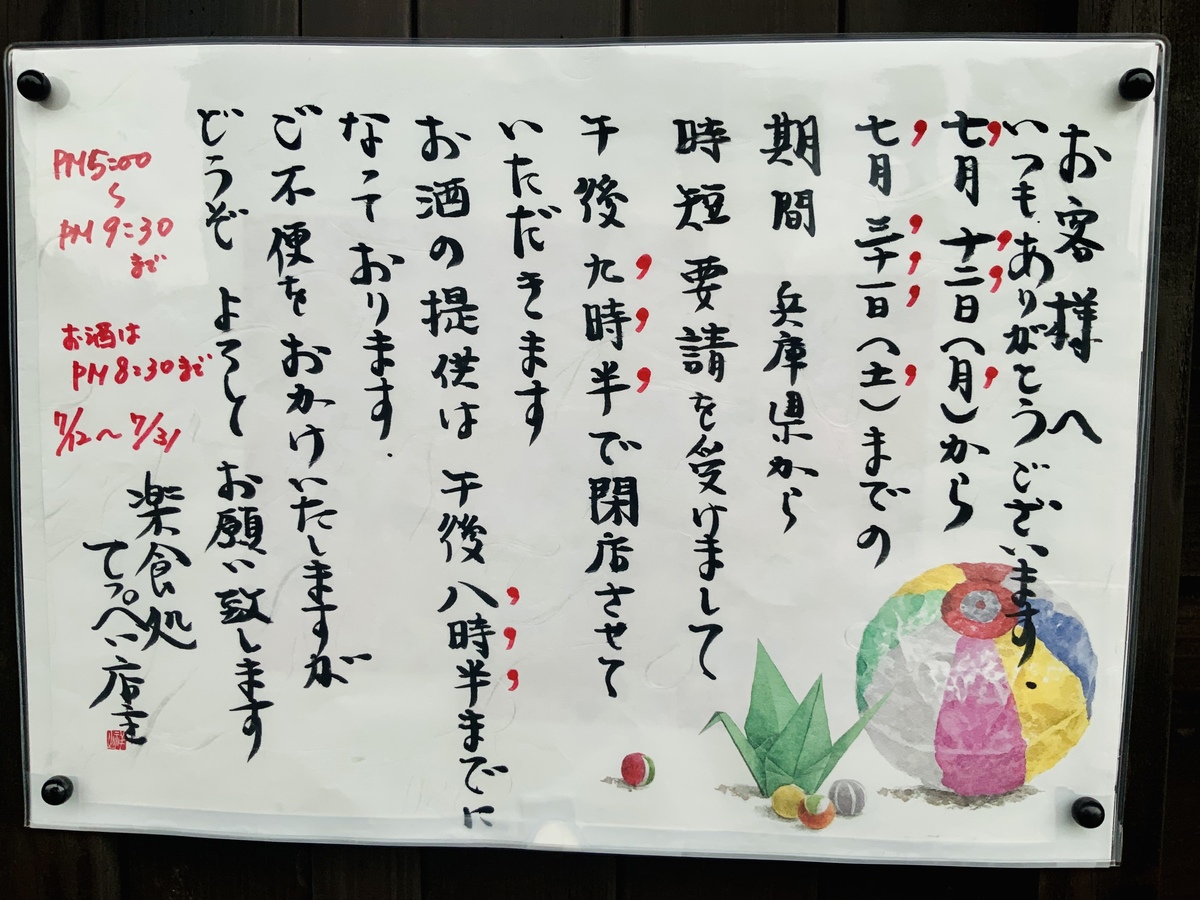 お客様へ
いつもありがとうございます.
七月十二日(月)から
七月三十一日(土)までの
期間 兵庫県から
時短要請を受けまして
午後九時半で閉店させて
いただきます
お酒の提供は午後八時半までに
なっております.
ご不便をおかけいたしますが
どうぞよろしくお願い致します
楽食処
てっぺい店主
PM5:00
〜
PM9:30
まで
お酒は
PM8:30まで
7/12〜7/31